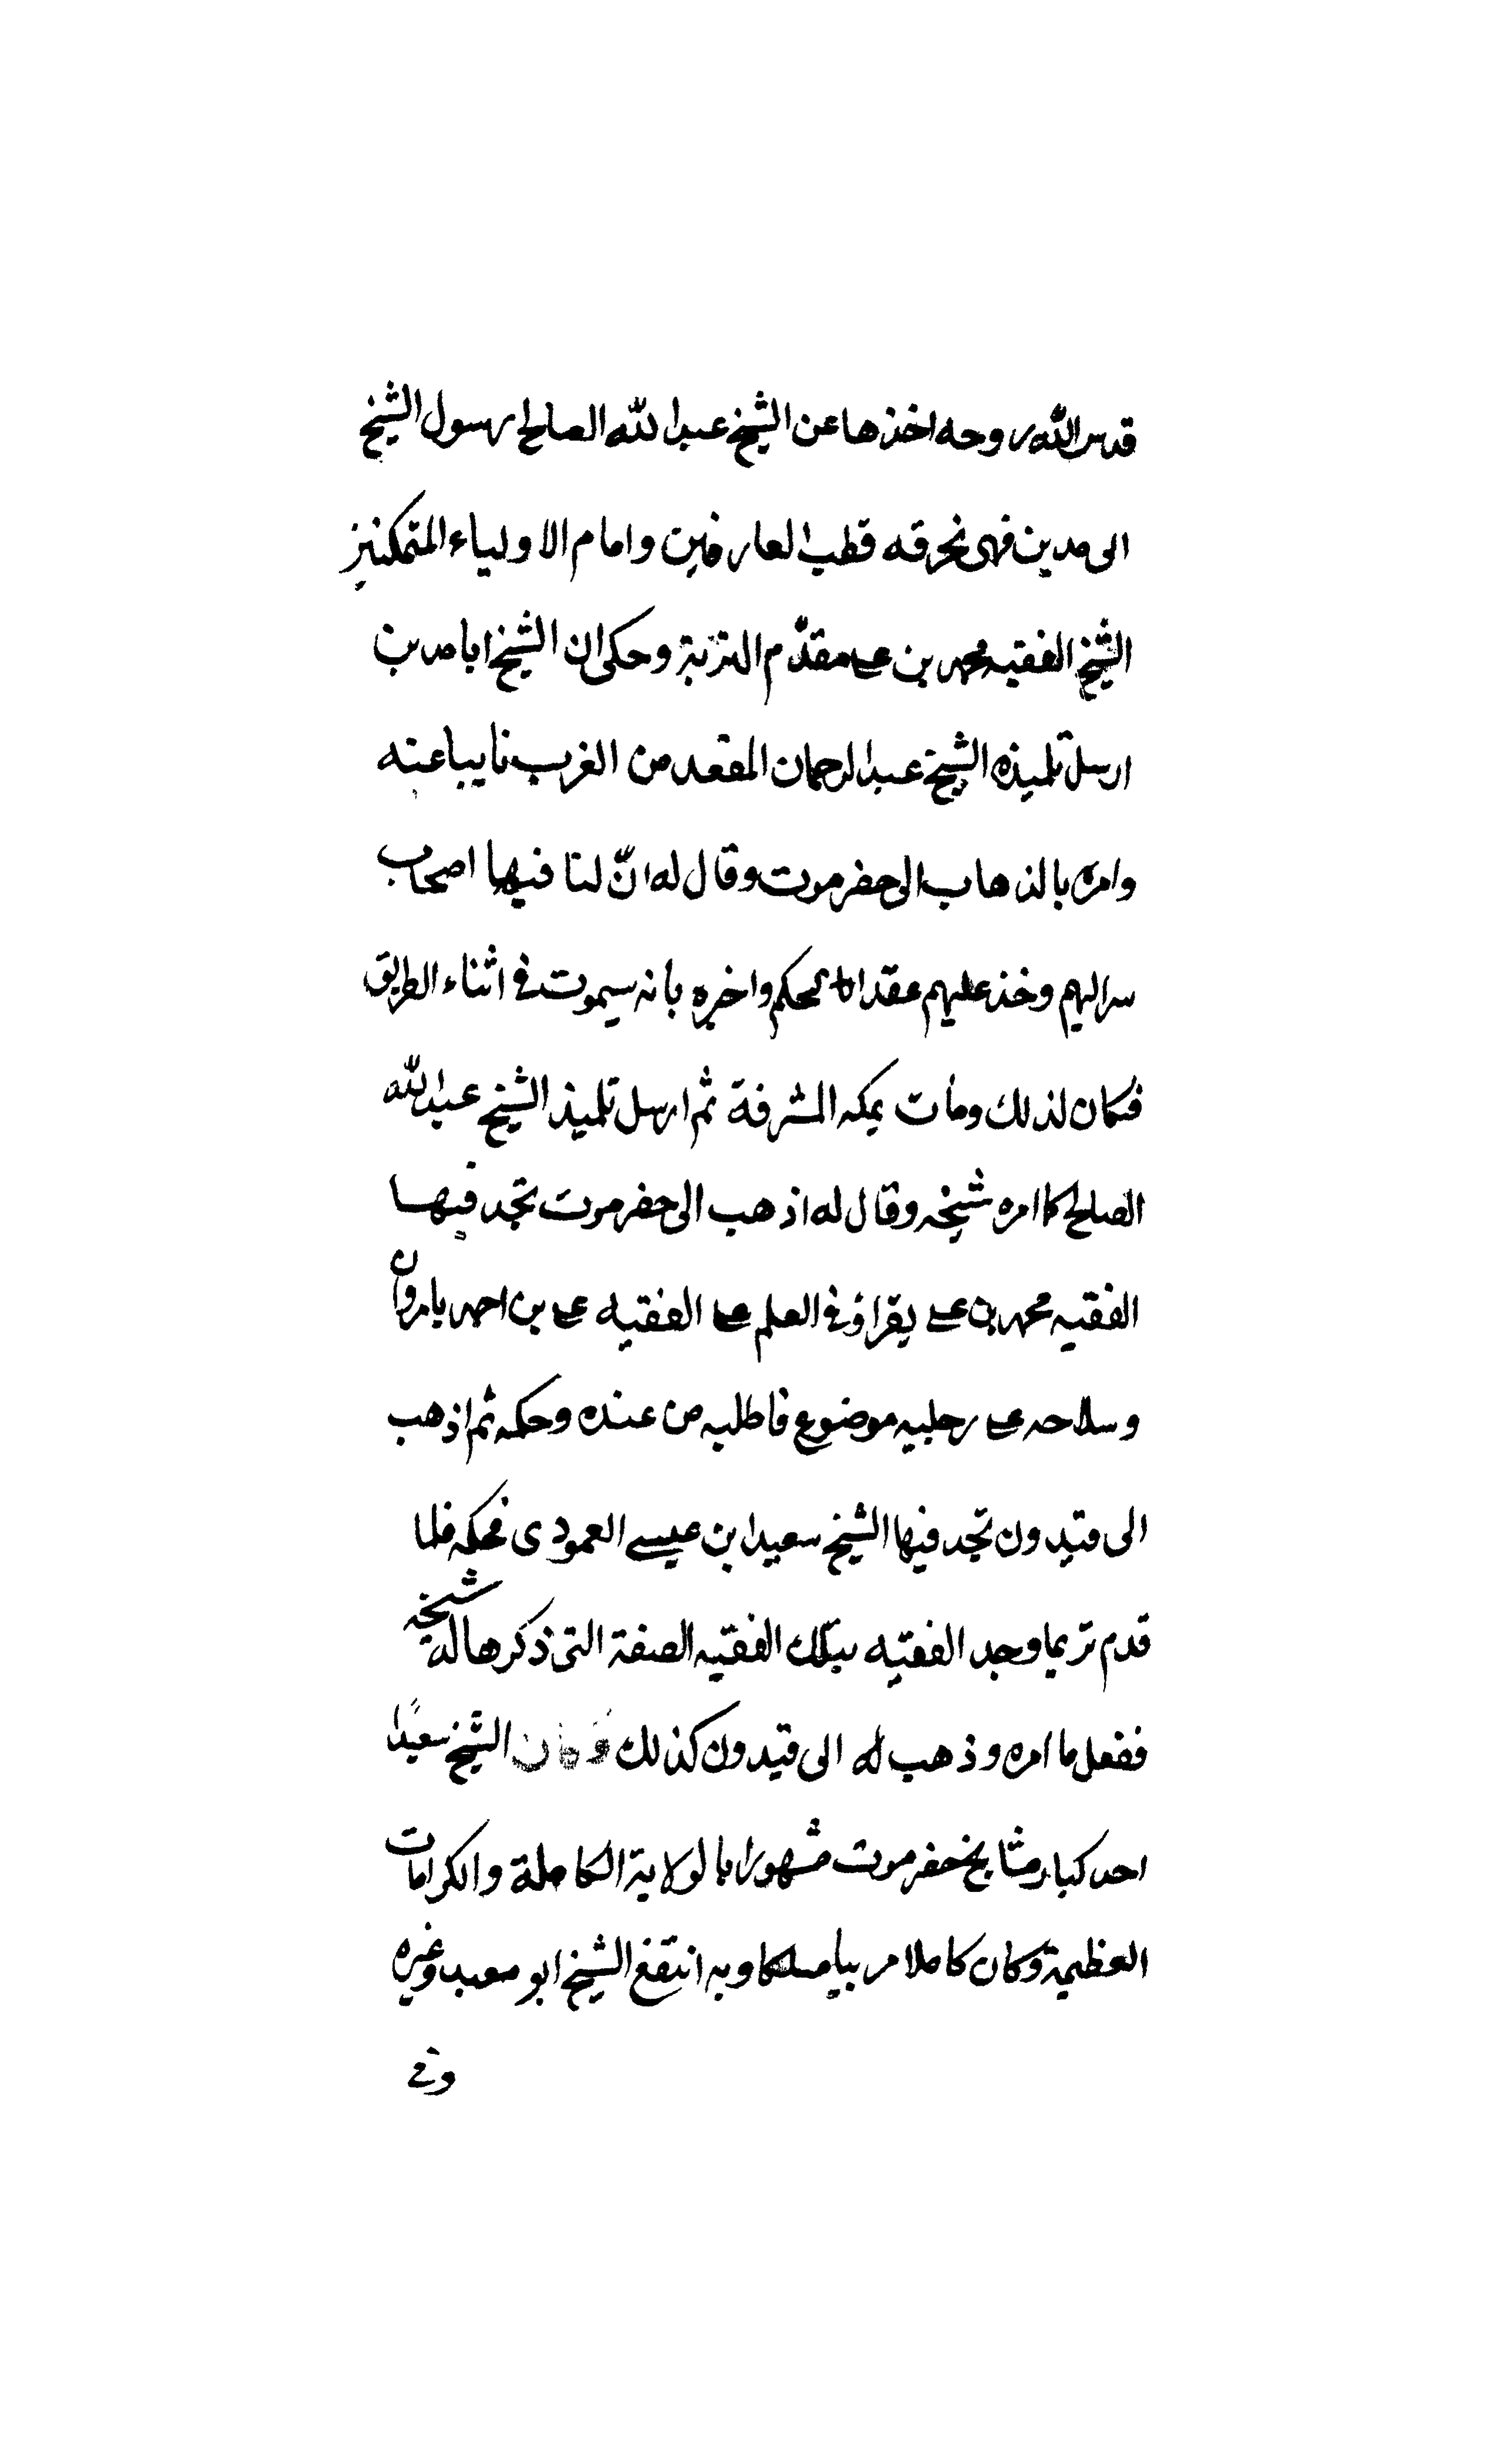 قدس الله روحه اخذها عن الشيخ عبد الله الصالح رسول الشيخ
الى مدين فهى نحرقه قطب العارفين وامام الاولياء المتمكنين
الشيخ الفقيه محمد بن على مقدّم التربة وحكى ان الشيخ ابا مدين
ارسل تلميذه الشيخ عبد الرحمان المقعد من الغرب نايبا عنه
وامره بالذهاب الى حضرموت وقال له انّ لنا فيها اصحاب
سر اليهم وخذ عليهم عقد التحكم واخبره بانه سيموت فى اثناء الطريق
فكان لذلك ومات بمكه المشرفة ثم ارسل تلميذ الشيخ عبد الله
الصالح كما امره شيخه وقال له اذهب الى حضرموت تجد فيها
الفقيه محمد بن على يقراؤ فى العلم على الفقيه على بن احمد بامروان
وسلاحه على رجليه موضوع فاطلبه من عنده وحكمه ثم اذهب
الى قيدون تجد فيها الشيخ سعيد ابن عيسى العمودى فحكمه فلما
قدم تريما وجد الفقيه بتلك الفقيه الصفة التى ذكرها له شيخه
ففعل ما امره وذهب له الى قيدون كذلك وكان الشيخ سعيدًا
احد كبار مشايخ حضرموت مشهورا بالولاية الكاملة والكرامات
العظيمة وكان كاملا مربيا مسلكا وبه انتفع الشيخ ابو معبد وغيره
وفى